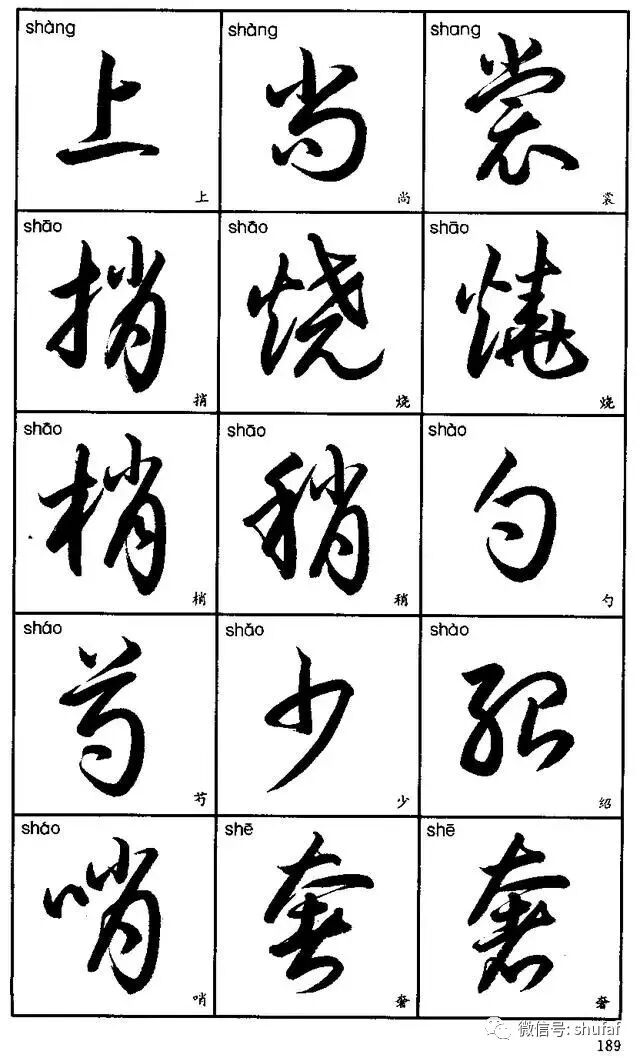 shàng shàng shang
上 尚 裳
上 尚 裳
shāo shāo shāo
捎 烧 燒
捎 烧 烧
shāo shāo shào
梢 稍 勺
梢 稍 勺
sháo shǎo shào
芍 少 绍
芍 少 绍
sháo shē shē
哨 奢 奢
哨 奢 奢
微信号: shufaf
189